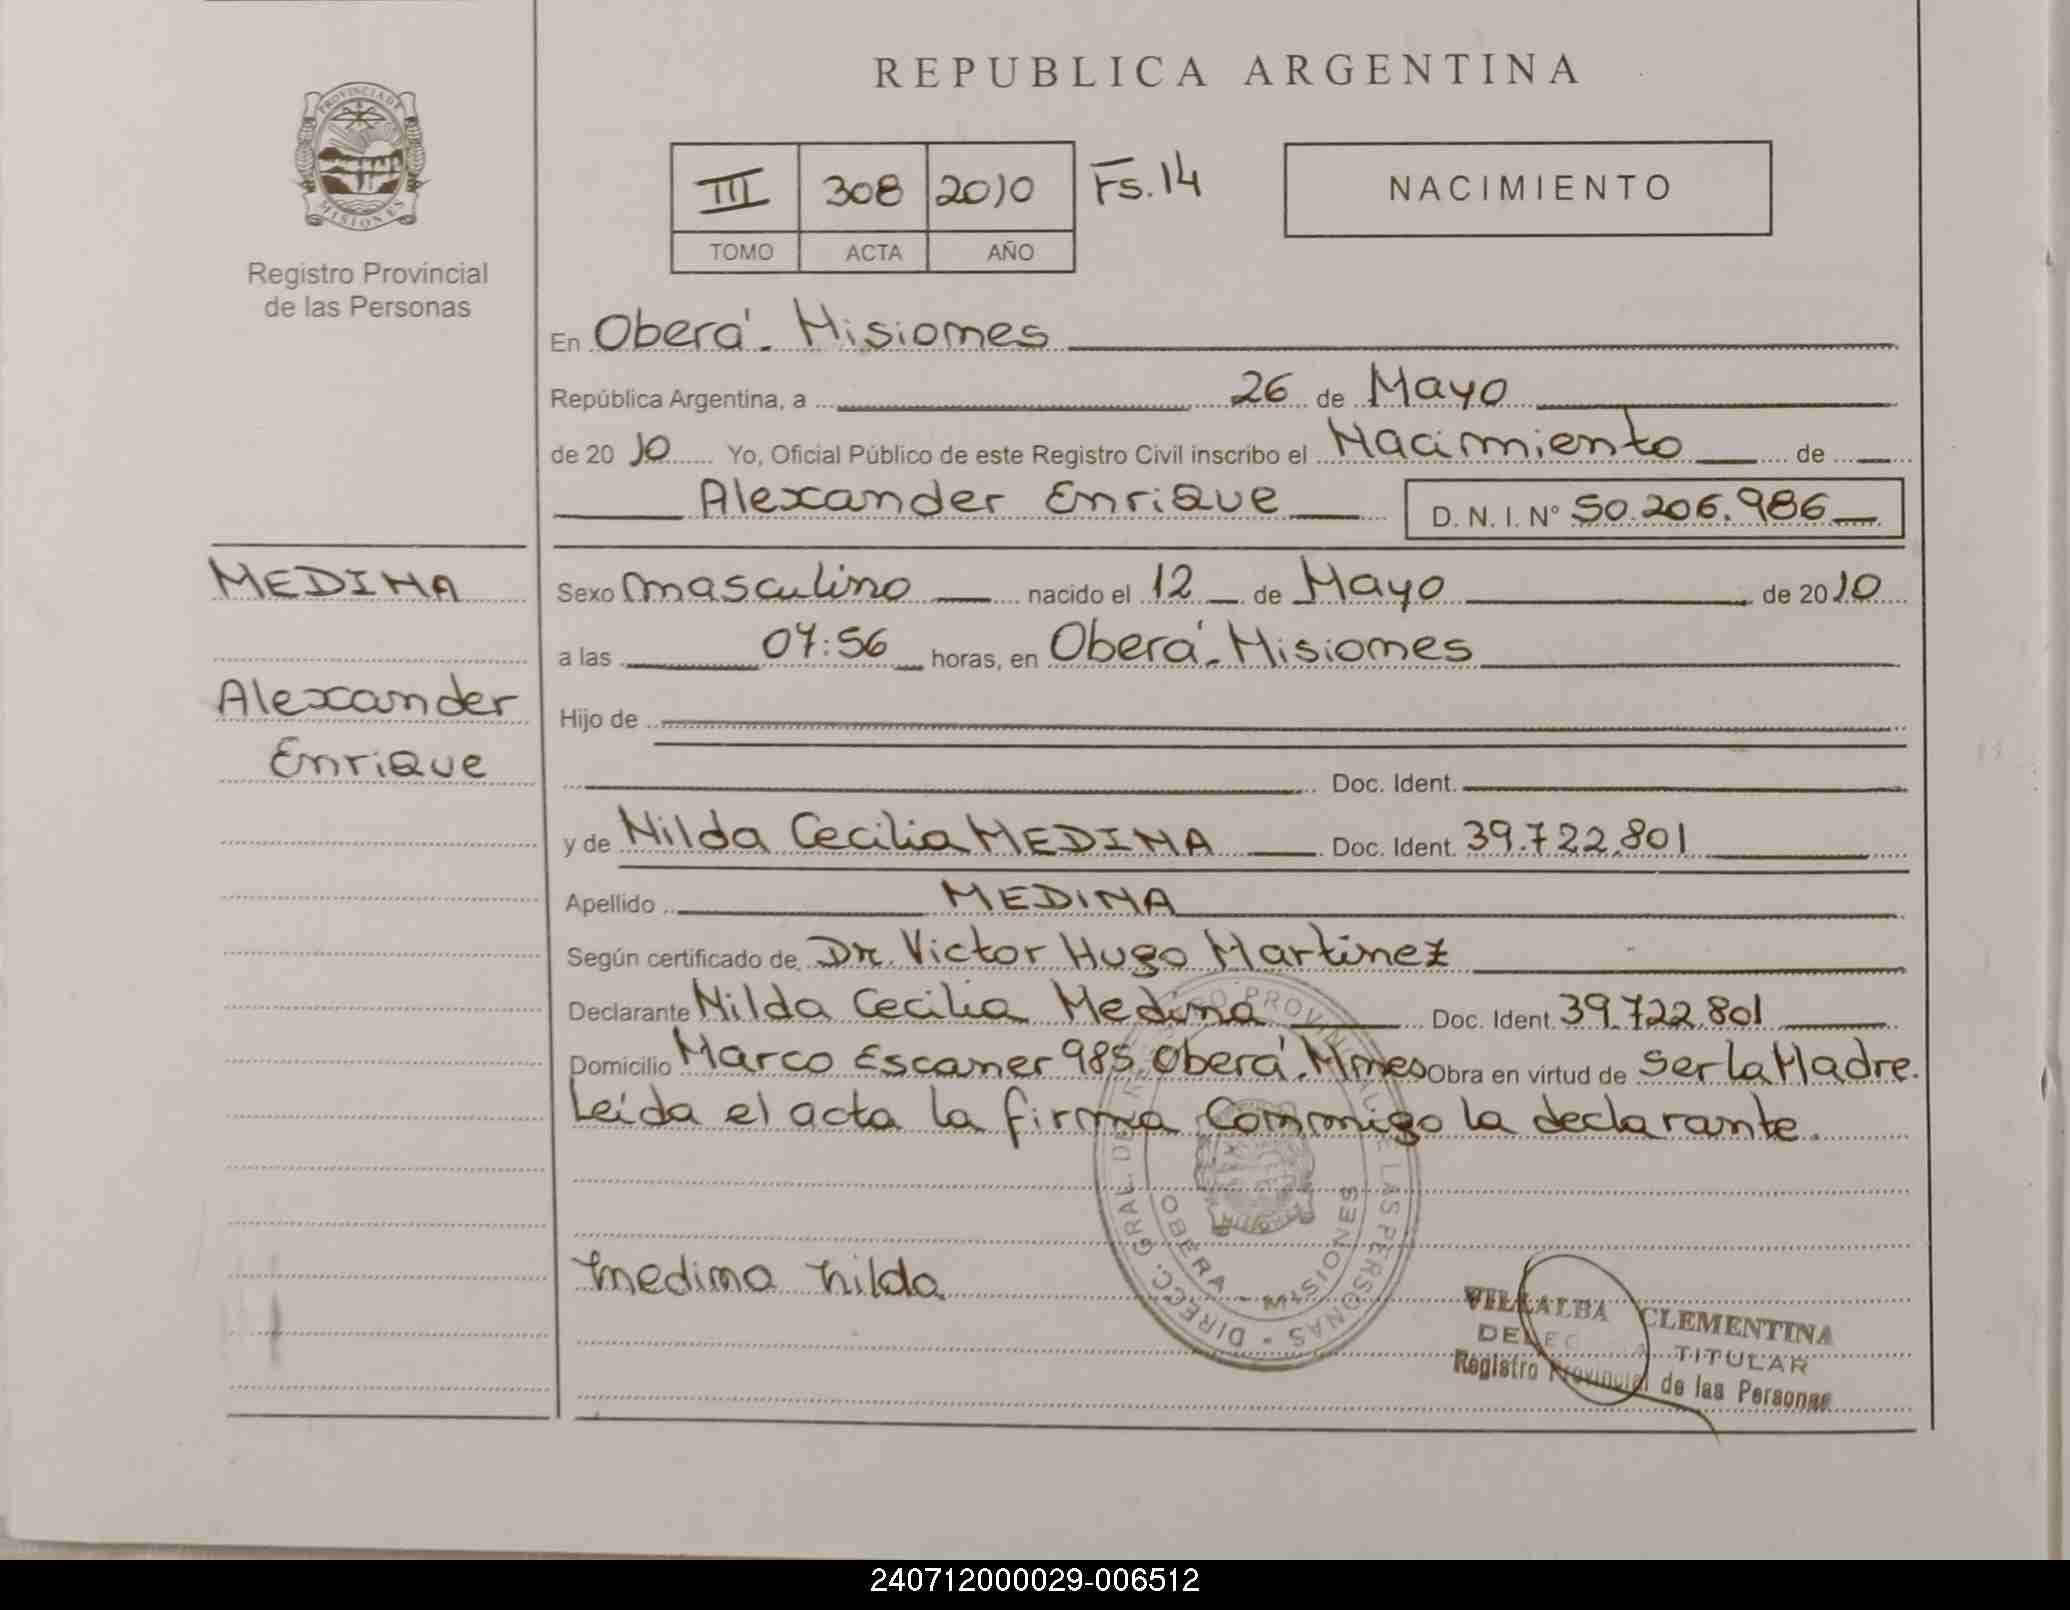 REPUBLICA ARGENTINA
PROVINCIA DE
MISIONES
Registro Provincial
de las Personas
III 308 2010 Fs.14
TOMO ACTA AÑO
NACIMIENTO
En Oberá - Misiones
República Argentina, a 26 de Mayo
de 2010 Yo, Oficial Público de este Registro Civil inscribo el Nacimiento de
Alexander Enrique D. N. I. N° 50.206.986
MEDINA
Alexander
Enrique
Sexo masculino nacido el 12 de Mayo de 2010
a las 07:56 horas, en Oberá - Misiones
Hijo de
Doc. Ident.
y de Nilda Cecilia MEDINA Doc. Ident. 39.722.801
Apellido MEDINA
Según certificado de Dr. Victor Hugo Martinez
Declarante Nilda Cecilia Medina Doc. Ident. 39.722.801
Domicilio Marco Escaner 985. Oberá. Mnes Obra en virtud de Ser la Madre.
Leída el acta la firma Conmigo la declarante.
DIRECC. GRAL. DEL REGISTRO PROVINCIAL DE LAS PERSONAS
OBERA - MISIONES
medina nilda
VILLALBA CLEMENTINA
TITULAR
Registro Provincial de las Personas
240712000029-006512